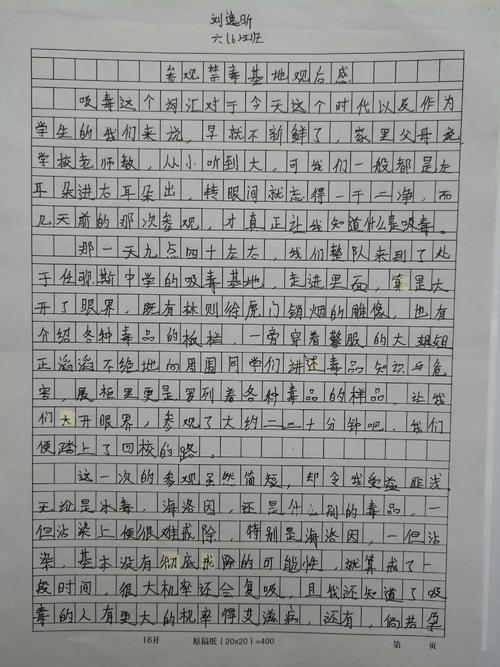 刘逸昕
六(6)班
参观禁毒基地观后感
吸毒这个词汇对于今天这个时代以及作为
学生的我们来说，早就不新鲜了，家里父母说
学校老师教，从小听到大，可我们一般都是左
耳朵进右耳朵出，转眼间就忘得一干二净，而
几天前的那次参观，才真正让我知道什么是吸毒。
那一天九点四十左右，我们整队来到了处
于任弼斯中学的吸毒基地，走进里面，算是大
开了眼界，既有林则徐虎门销烟的雕像，也有
介绍各种毒品的板栏，一旁穿着警服的大姐姐
正滔滔不绝地向周围同学们讲述毒品知识与危
害，展柜里更是罗列着各种毒品的样品，让我
们大开眼界，参观了大约二三十分钟吧，我们
便踏上了回校的路。
这一次的参观虽然简短，却令我受益非浅
无论是冰毒，海洛因，还是什么别的毒品，一
但沾染上便很难戒除，特别是海洛因，一但沾
染，基本没有彻底戒除的可能性，就算戒了一
段时间，很大机率还会复吸，且我还知道了吸
毒的人有更大的机率得艾滋病，还有，倘若孕
16开 原稿纸(20×20)=400 第 页